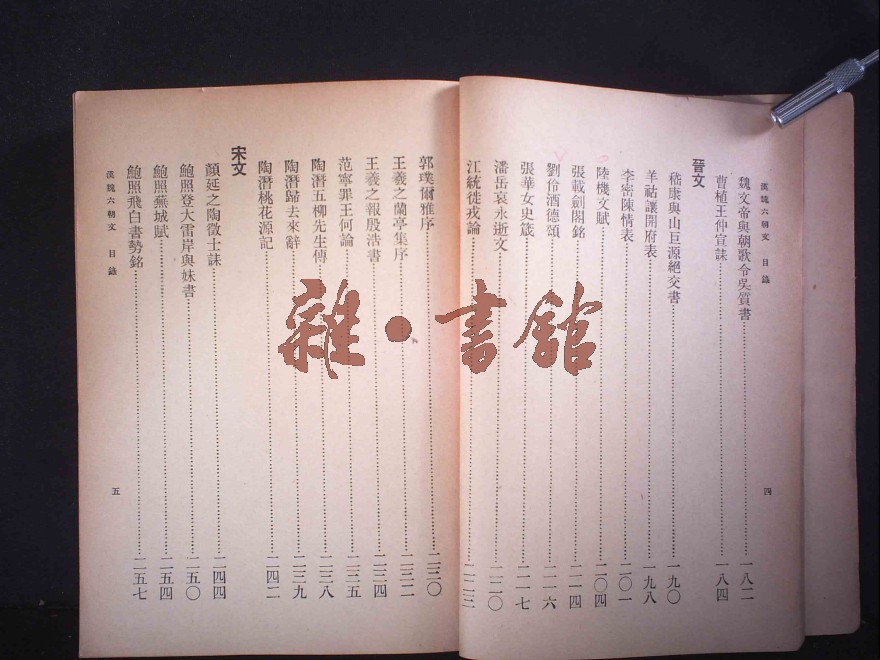 漢魏六朝文 目錄
魏文帝與朝歌令吳質書……一八二
曹植王仲宣誄……一八四
晉文
嵇康與山巨源絕交書……一九〇
羊祜讓開府表……一九八
李密陳情表……二〇一
陸機文賦……二〇四
張載劍閣銘……二一四
劉伶酒德頌……二一六
張華女史箴……二一七
潘岳哀永逝文……二二〇
江統徙戎論……二二三
四
郭璞爾雅序……二三〇
王羲之蘭亭集序……二三二
王羲之報殷浩書……二三四
范寧罪王何論……二三五
陶潛五柳先生傳……二三八
陶潛歸去來辭……二三九
陶潛桃花源記……二四二
宋文
顏延之陶徵士誄……二四四
鮑照登大雷岸與妹書……二五〇
鮑照蕪城賦……二五四
鮑照飛白書勢銘……二五七
漢魏六朝文 目錄
五
雜·書館